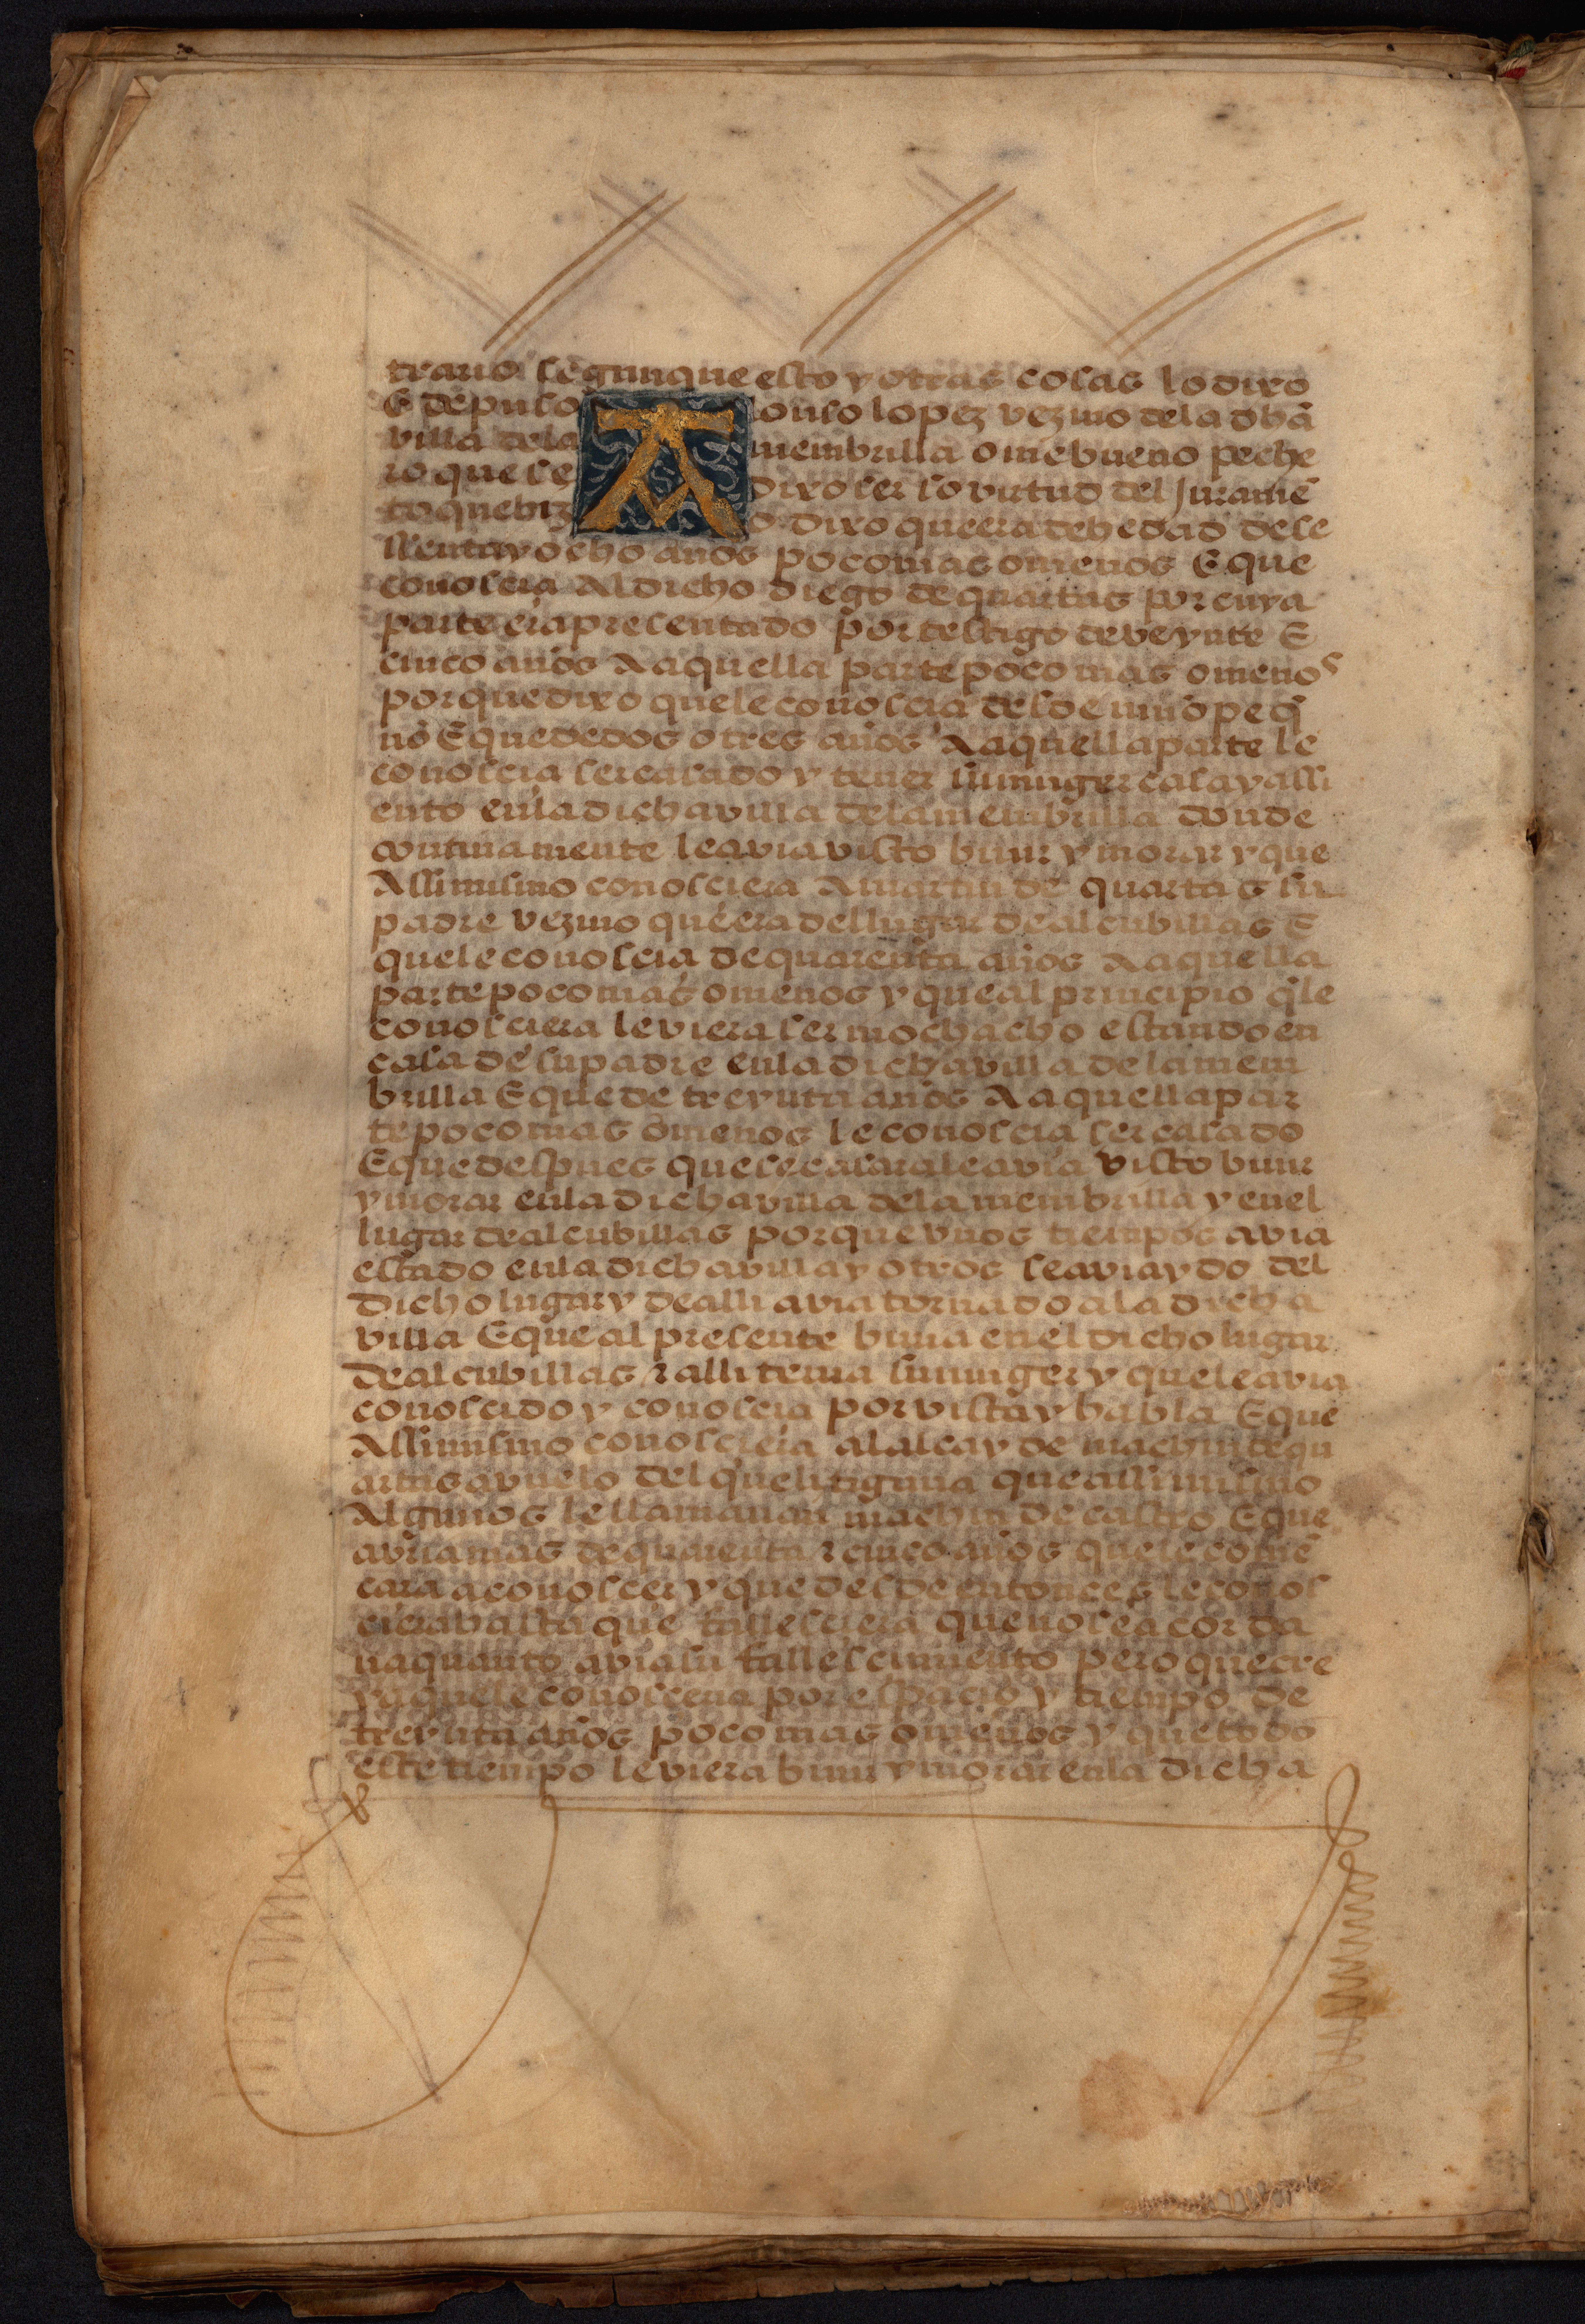 trario segun que esto y otras cosas lo dixo
E depuso Alonso lopez vezino de la dhã
villa de la membrilla ome bueno peche
ro que se dixo ser so virtud del Juramẽ
to que hizo dixo que era de hedad de se
ssenta y ocho años poco mas o menos E que
conoscia Al dicho diego de quartas por cuya
parte era presentado por testigo de veynte E
cinco años A aquella parte poco mas o menos
porque dixo que le conoscia desde niño peq̃
ño E que de dos o tres años A aquella parte le
conoscia ser casado y tener su muger casa y assi
ento en la dicha villa de la membrilla donde
continamente le avia visto biuir y morar y que
Assimismo conosciera A martin de quartas su
padre vezino que era del lugar de alcubillas E
que le conoscia de quarenta años A aquella
parte poco mas o menos y que al principio q̃ le
conosciera le viera ser mochacho estando en
casa de su padre en la dicha villa de la mem
brilla E que de treynta años A aquella par
te poco mas o menos le conoscia ser casado
E que despues que se casara le avia visto biuir
y morar en la dicha villa de la membrilla y en el
lugar de alcubillas porque vnos tiempos avia
estado en la dicha villa y otros se avia ydo del
dicho lugar y de alli avia tornado a la dicha
villa E que al presente biuia en el dicho lugar
de alcubillas z alli tenia su muger y que le avia
conoscido y conoscia por vista y habla E que
Assimismo conosciera al alcayde machin de qu
artas avuelo del que litigaua que assimismo
Algunos le llamauan machin de castro E que
avria mas de quarenta z cinco años que le comẽ
cara a conoscer y que desde entonces le conos
ciera hasta que fallesciera que no se acorda
ua quanto avia su fallescimiento pero que cre
ya que le conosceria por espacio y tiempo de
treynta años poco mas o menos y que todo
este tiempo le viera biuir y morar en la dicha